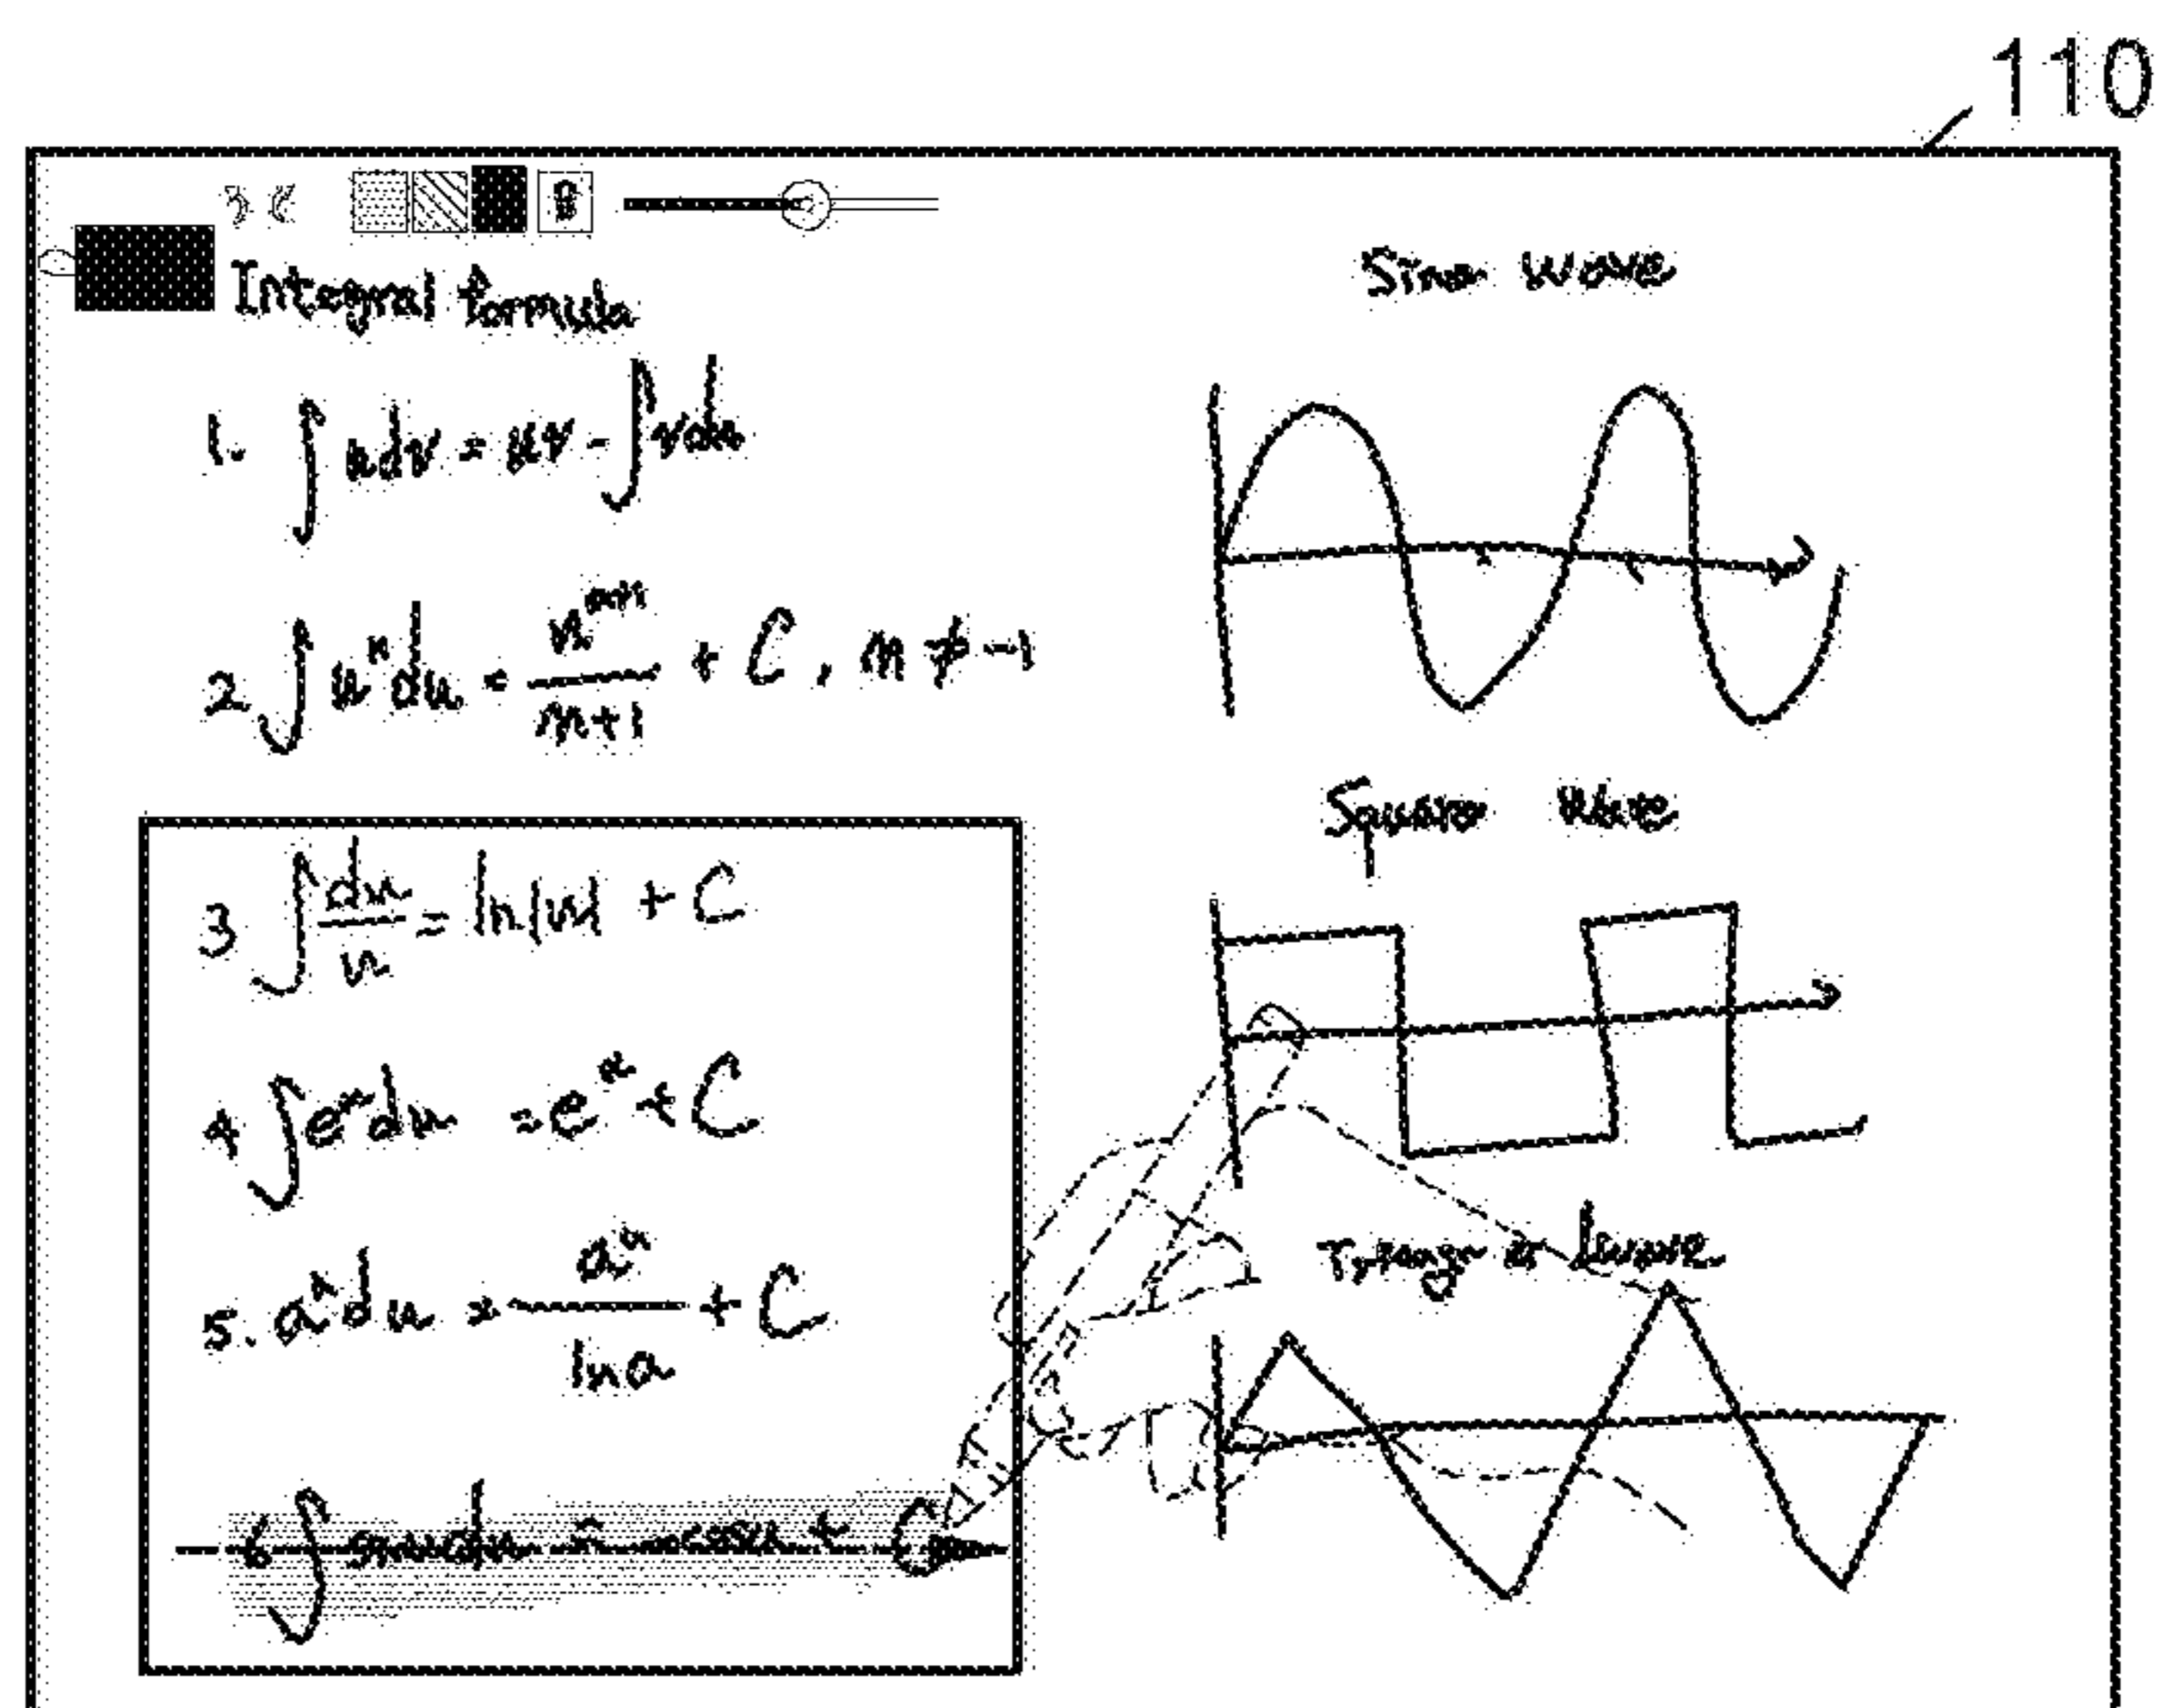 110
Integral formula
1. ∫udv = uv - ∫vdu
2 ∫u^n du = n^{n+1}/m+1 + C, n ≠ -1
3 ∫du/u = ln|u| + C
4 ∫e^u du = e^u + C
5. a^u du = a^u/ln a + C
6 ∫sinudu = -cosu + C
Sine wave
Square wave
wave